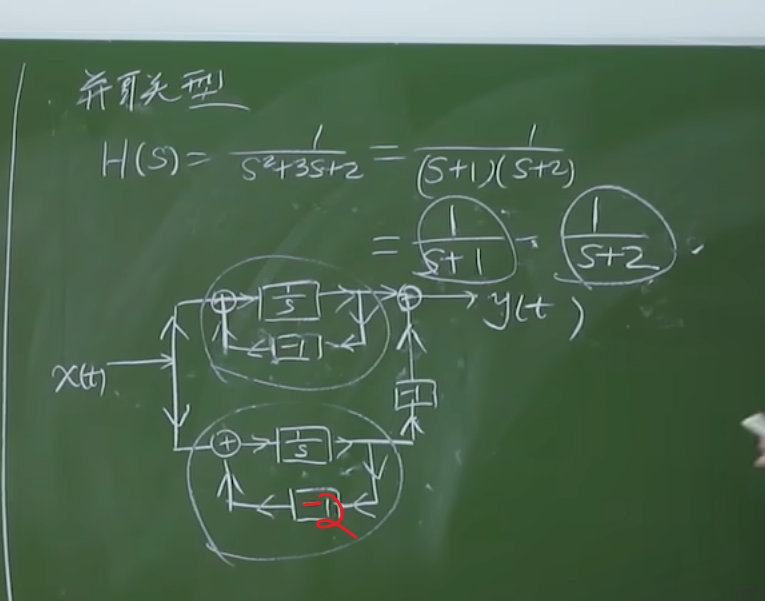 并联型
H(S) = 1/(S²+3S+2) = 1/((S+1)(S+2))
= 1/(S+1) - 1/(S+2)
+ 1/S + y(t)
-1
x(t)
-1
+ 1/S
-2